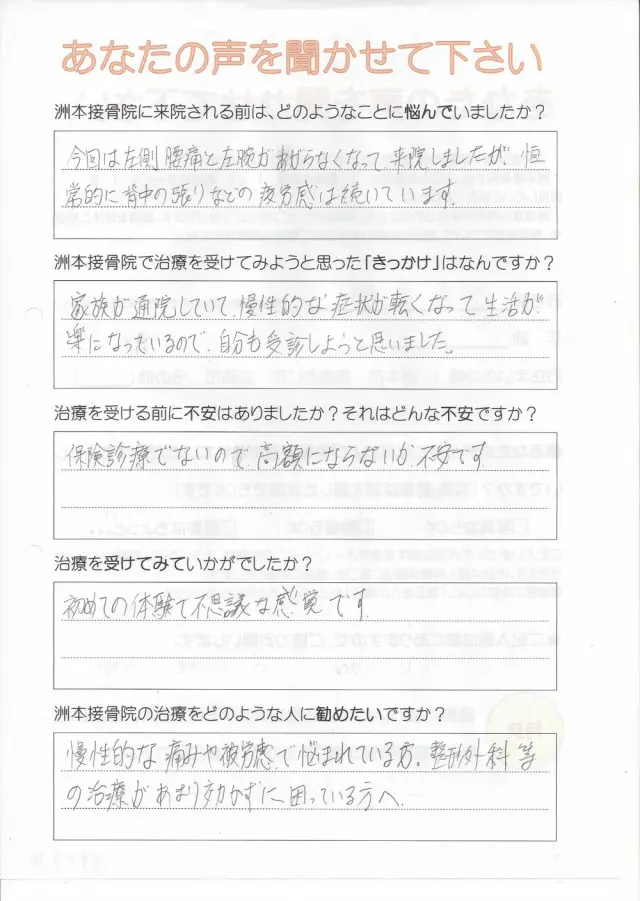 あなたの声を聞かせて下さい
洲本接骨院に来院される前は、どのようなことに悩んでいましたか？
今回は左側腰痛と左腕があがらなくなって来院しましたが 恒
常的に背中の張りなどの疲労感は続いています.
洲本接骨院で治療を受けてみようと思った「きっかけ」はなんですか？
家族が通院していて、慢性的な症状が軽くなって生活が
楽になっているので、自分も受診しようと思いました。
治療を受ける前に不安はありましたか？それはどんな不安ですか？
保険診療でないので 高額にならないか 不安です
治療を受けてみていかがでしたか？
初めての体験で不思議な感覚です
洲本接骨院の治療をどのような人に勧めたいですか？
慢性的な痛みや疲労感で悩まれている方. 整形外科等
の治療があまり効かずに困っている方へ